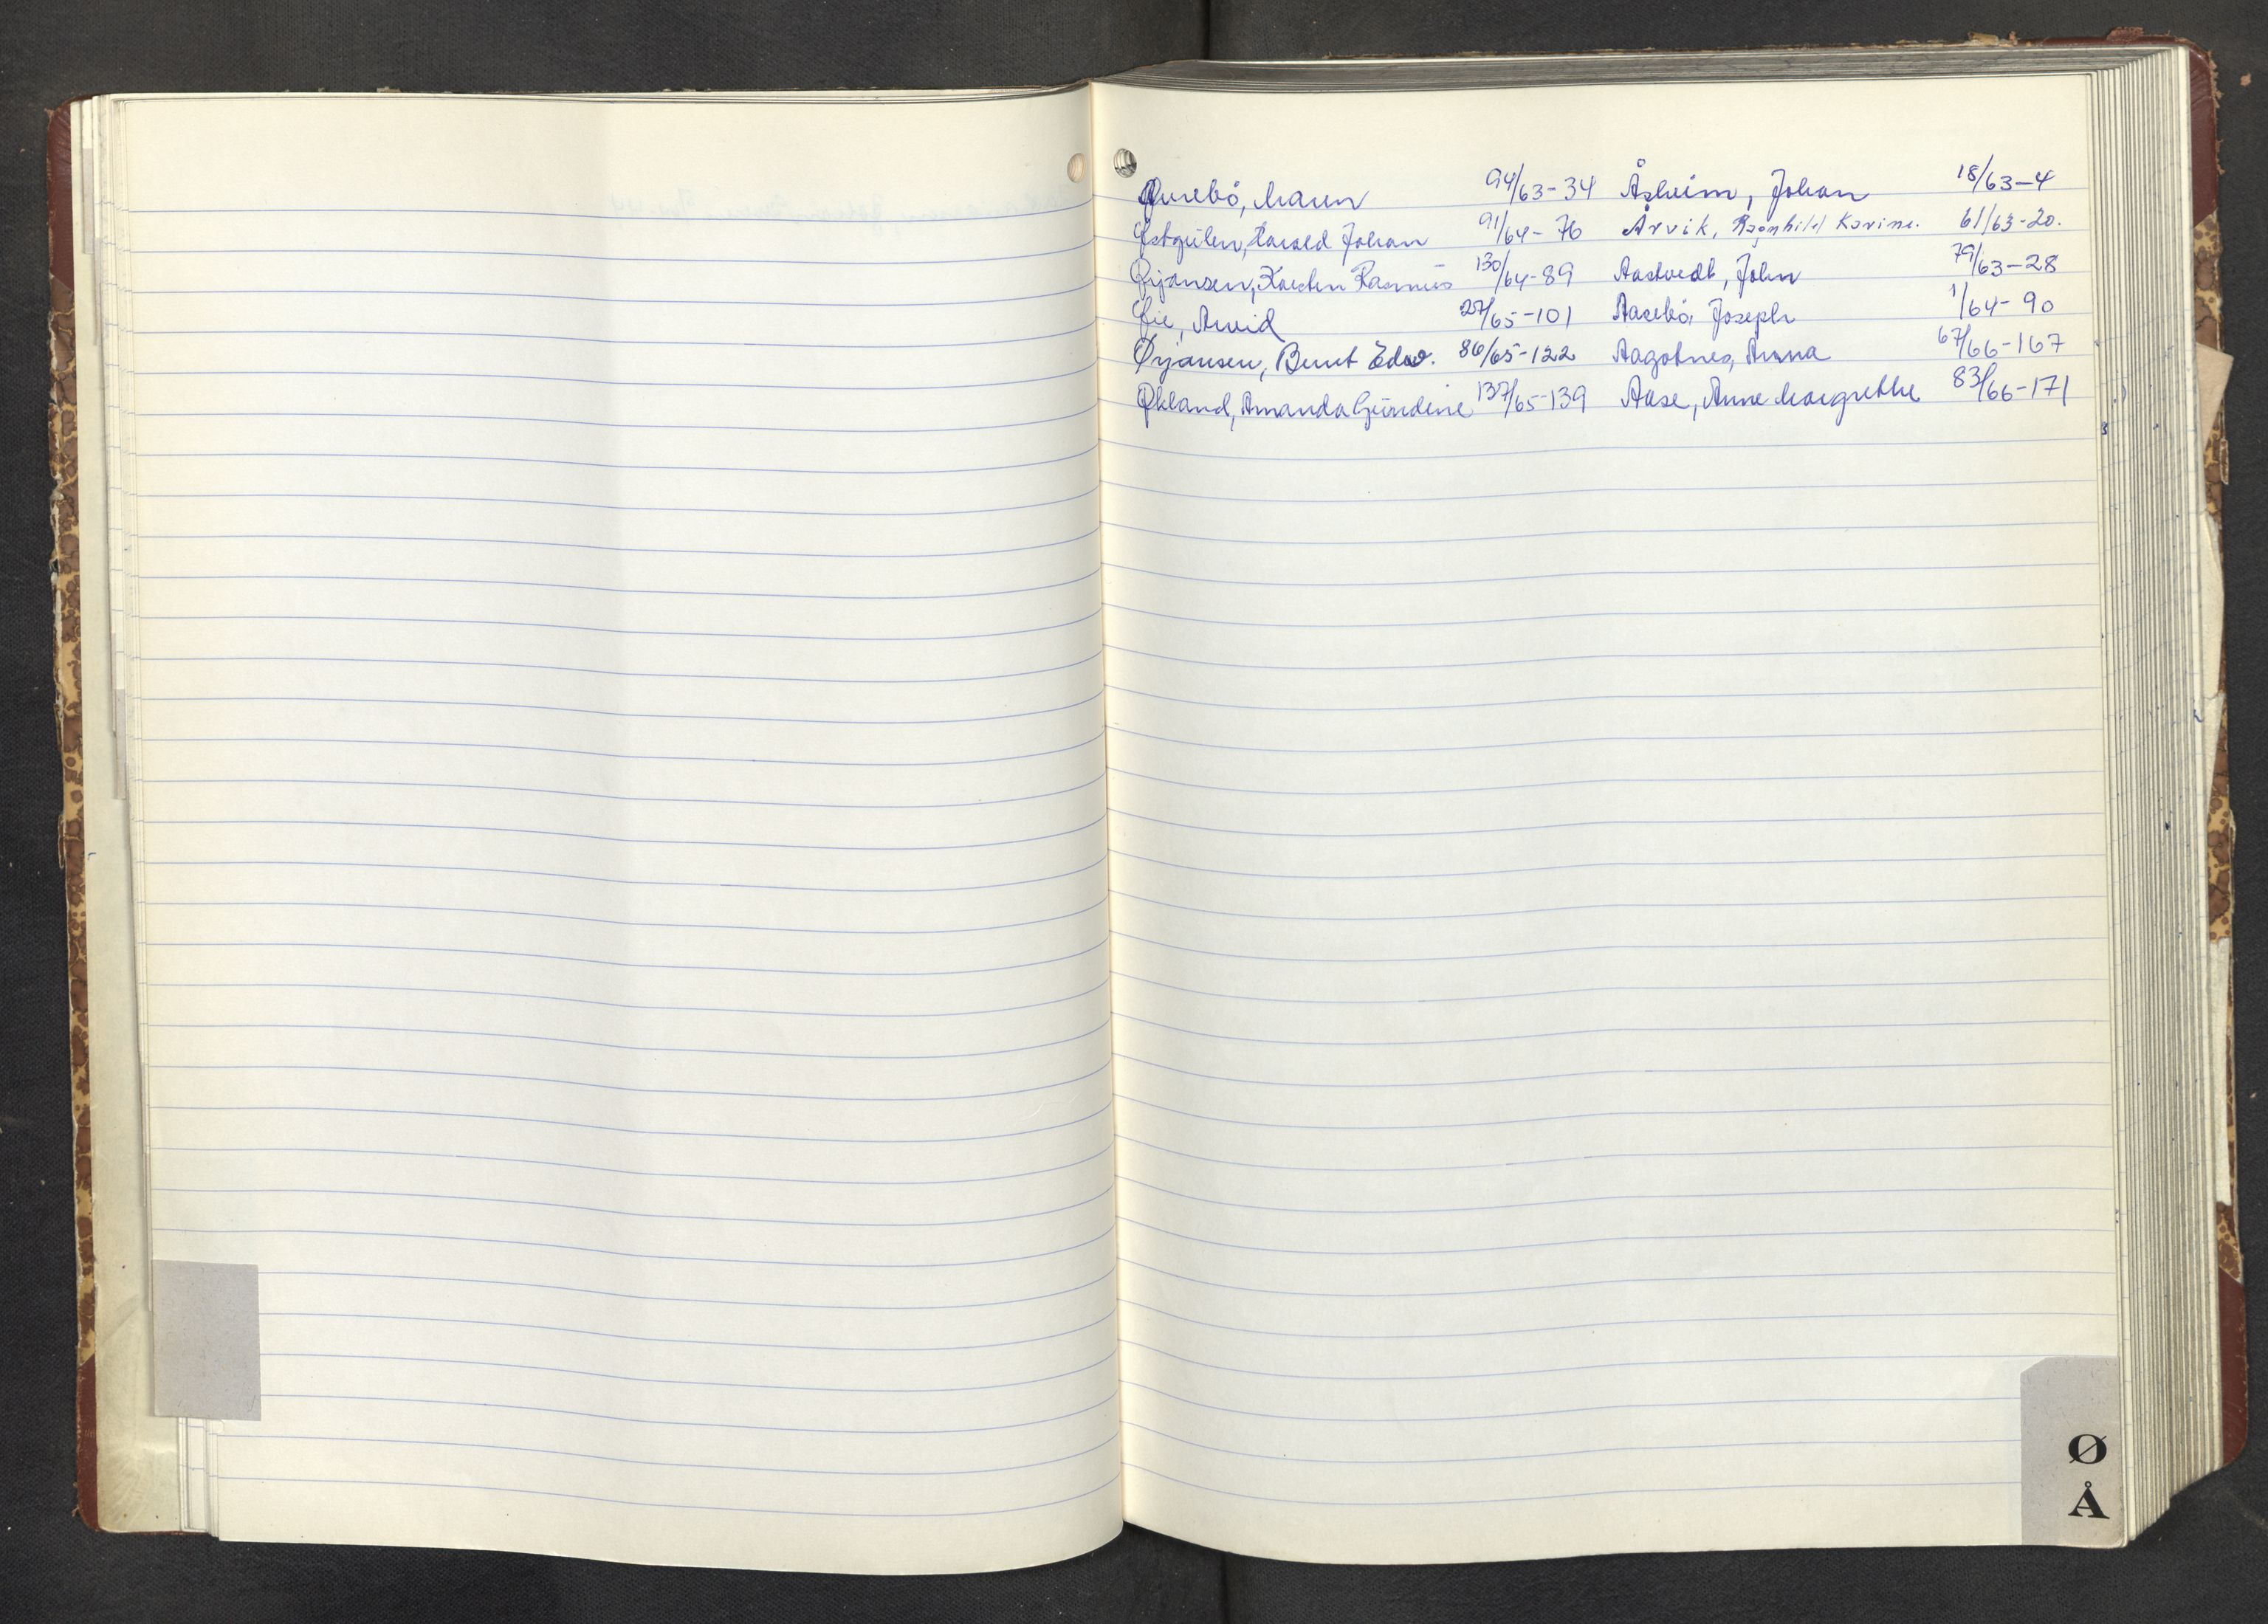 Øurebö, Maren 94/63-34 Åsheim, Johan 18/63-4
Østgulen, Harald Johan 91/64-76 Årvik, Ragnhild Karine. 61/63-20.
Ørjansen, Karsten Rasmus 130/64-89 Aastvedt, John 79/63-28
Øie, Arvid 27/65-101 Aasebö, Joseph 1/64-90
Ørjansen, Bernt Edw. 86/65-122 Aagotnes, Anna 67/66-167
Økland, Amanda Gundine 137/65-139 Aase, Anne Margrethe 83/66-171
Ø
Å